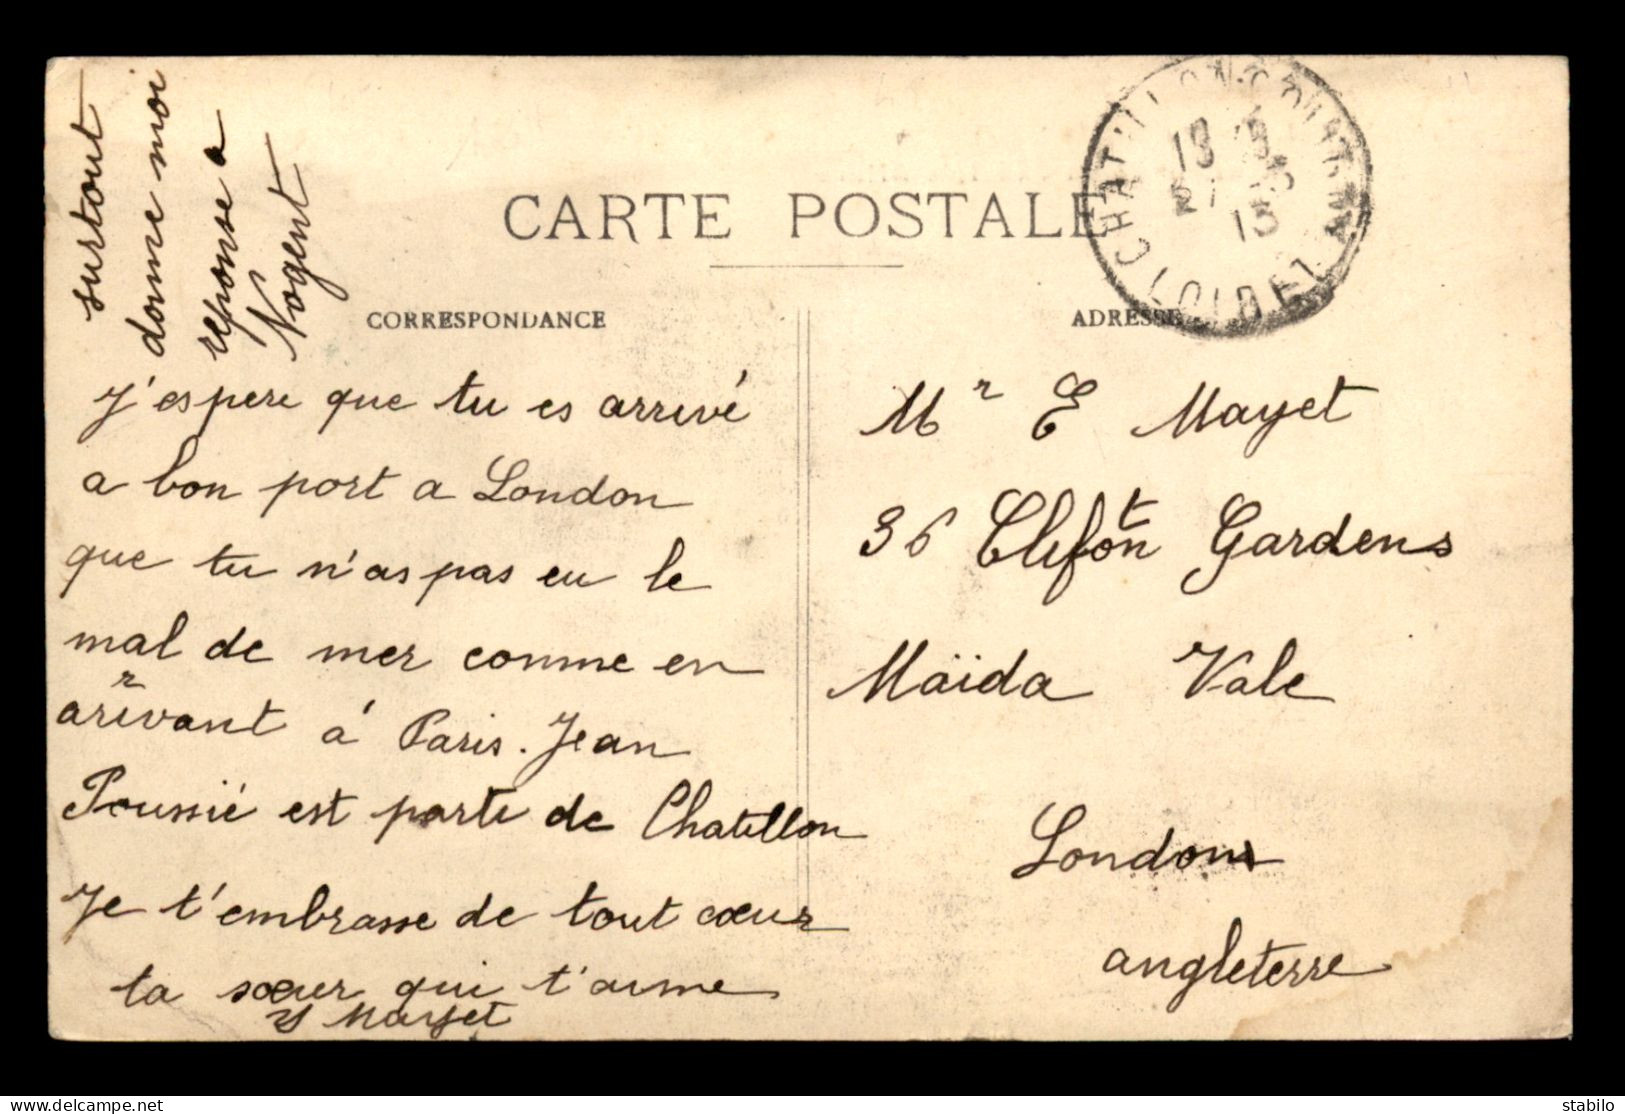 surtout
donne moi
reponse a
Nogent
CARTE POSTALE
CORRESPONDANCE
ADRESSE
LOIRET
13
J'espere que tu es arrivé
a bon port a London
que tu n'as pas eu le
mal de mer comme en
arrivant à Paris. Jean
Poussié est parti de Chatillon
Je t'embrasse de tout cœur
ta sœur qui t'aime
Mayet
Mr E Mayet
36 Clifton Gardens
Maïda Vale
London
angleterre
stabilo